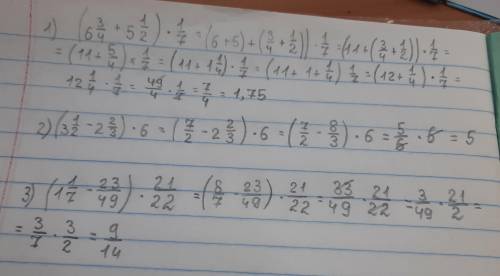 1) (6 3/4 + 5 1/2) · 1/7 = (6+5) + (3/4 + 1/2)) · 1/7 = (11 + (3/4 + 1/2)) · 1/7 =
= (11 + 5/4) × 1/7 = (11 + 1 1/4) · 1/7 = (11 + 1 + 1/4) 1/7 = (12 + 1/4) · 1/7 =
12 1/4 · 1/7 = 49/4 · 1/7 = 7/4 = 1,75
2) (3 1/2 - 2 2/3) · 6 = (7/2 - 2 2/3) · 6 = (7/2 - 8/3) · 6 = 5/6 · 6 = 5
3) (1 1/7 - 23/49) · 21/22 = (8/7 - 23/49) · 21/22 = 33/49 · 21/22 = 3/49 · 21/2 =
= 3/7 · 3/2 = 9/14